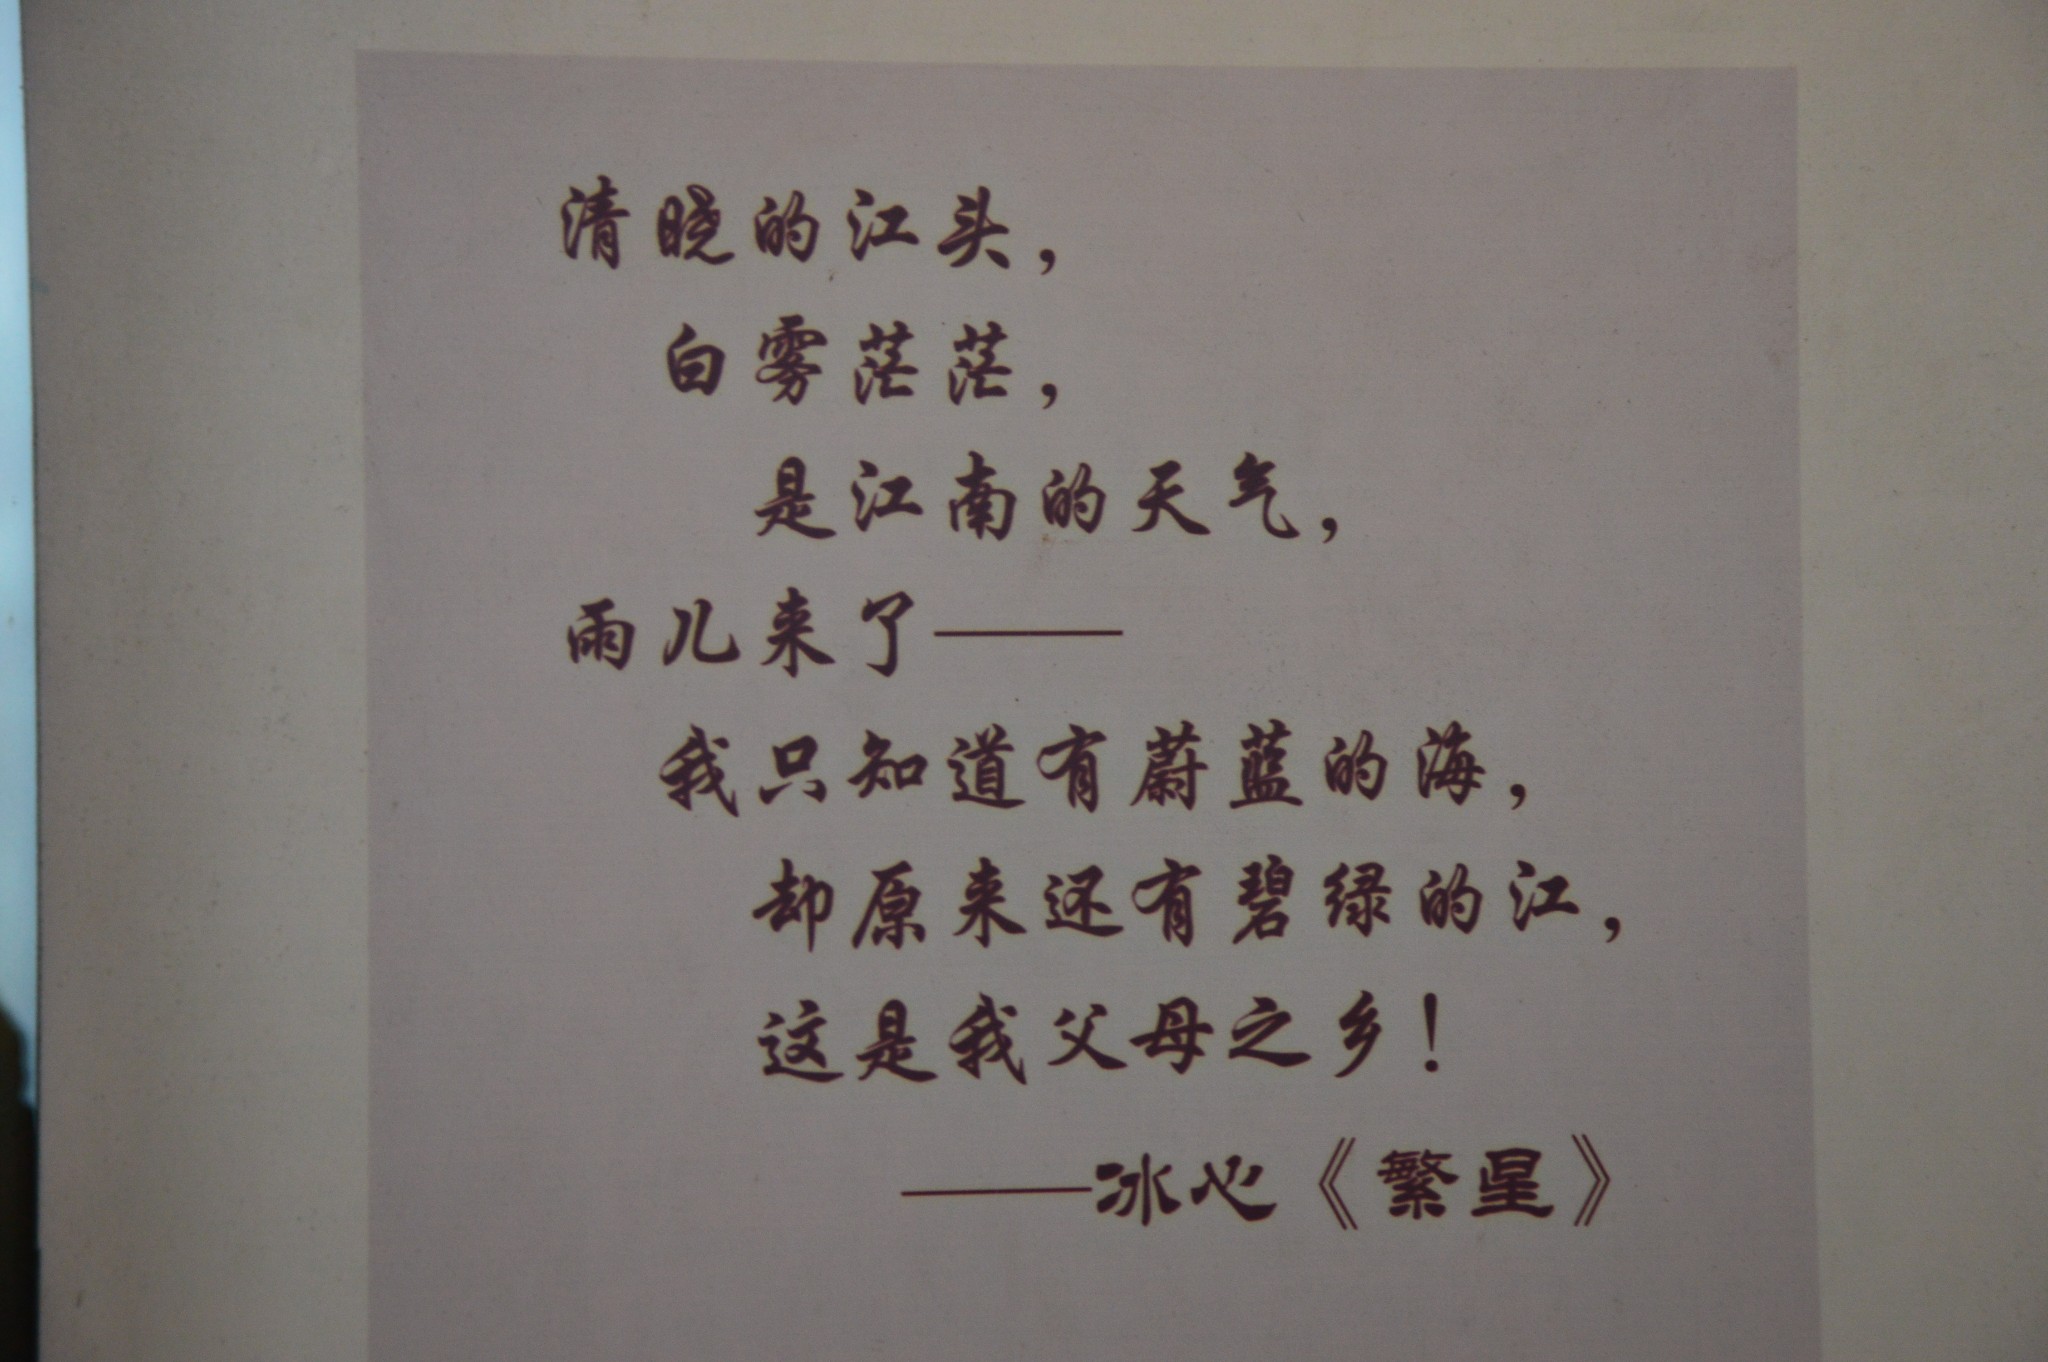 清晓的江头，
白雾茫茫，
是江南的天气，
雨儿来了——
我只知道有蔚蓝的海，
却原来还有碧绿的江，
这是我父母之乡！
——冰心《繁星》